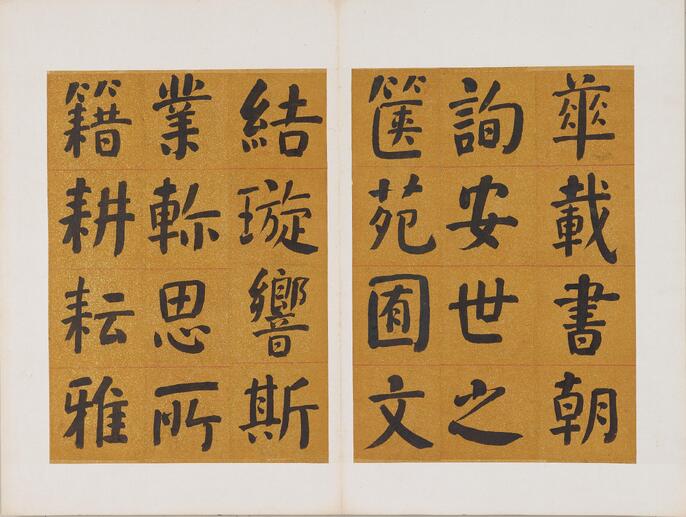 萃載書朝
詢安世之
篋苑囿文
結璇響斯
業軫思所
籍耕耘雅